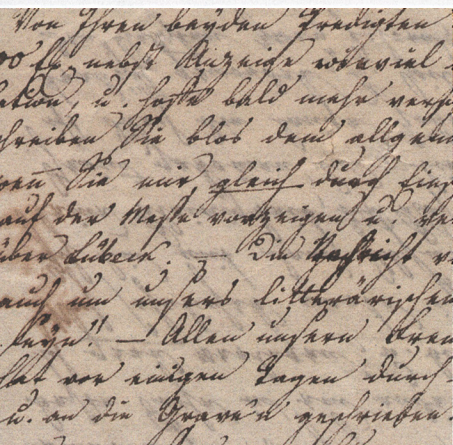 Von Ihren beyden Predigten
00 Ex. nebst Anzeige wieviel
lation, u. hoffe bald mehr vers
chreiben Sie blos dem allgem
wen̅ Sie mir gleich durch Eins
auf der Messe vorzeigen u. ve
über Lübeck. — Die Nachricht v
auch um unsers litterärischen
seyn! — Allen unsern Freu
hat vor einigen Tagen durch
u. an die Graven geschrieben.